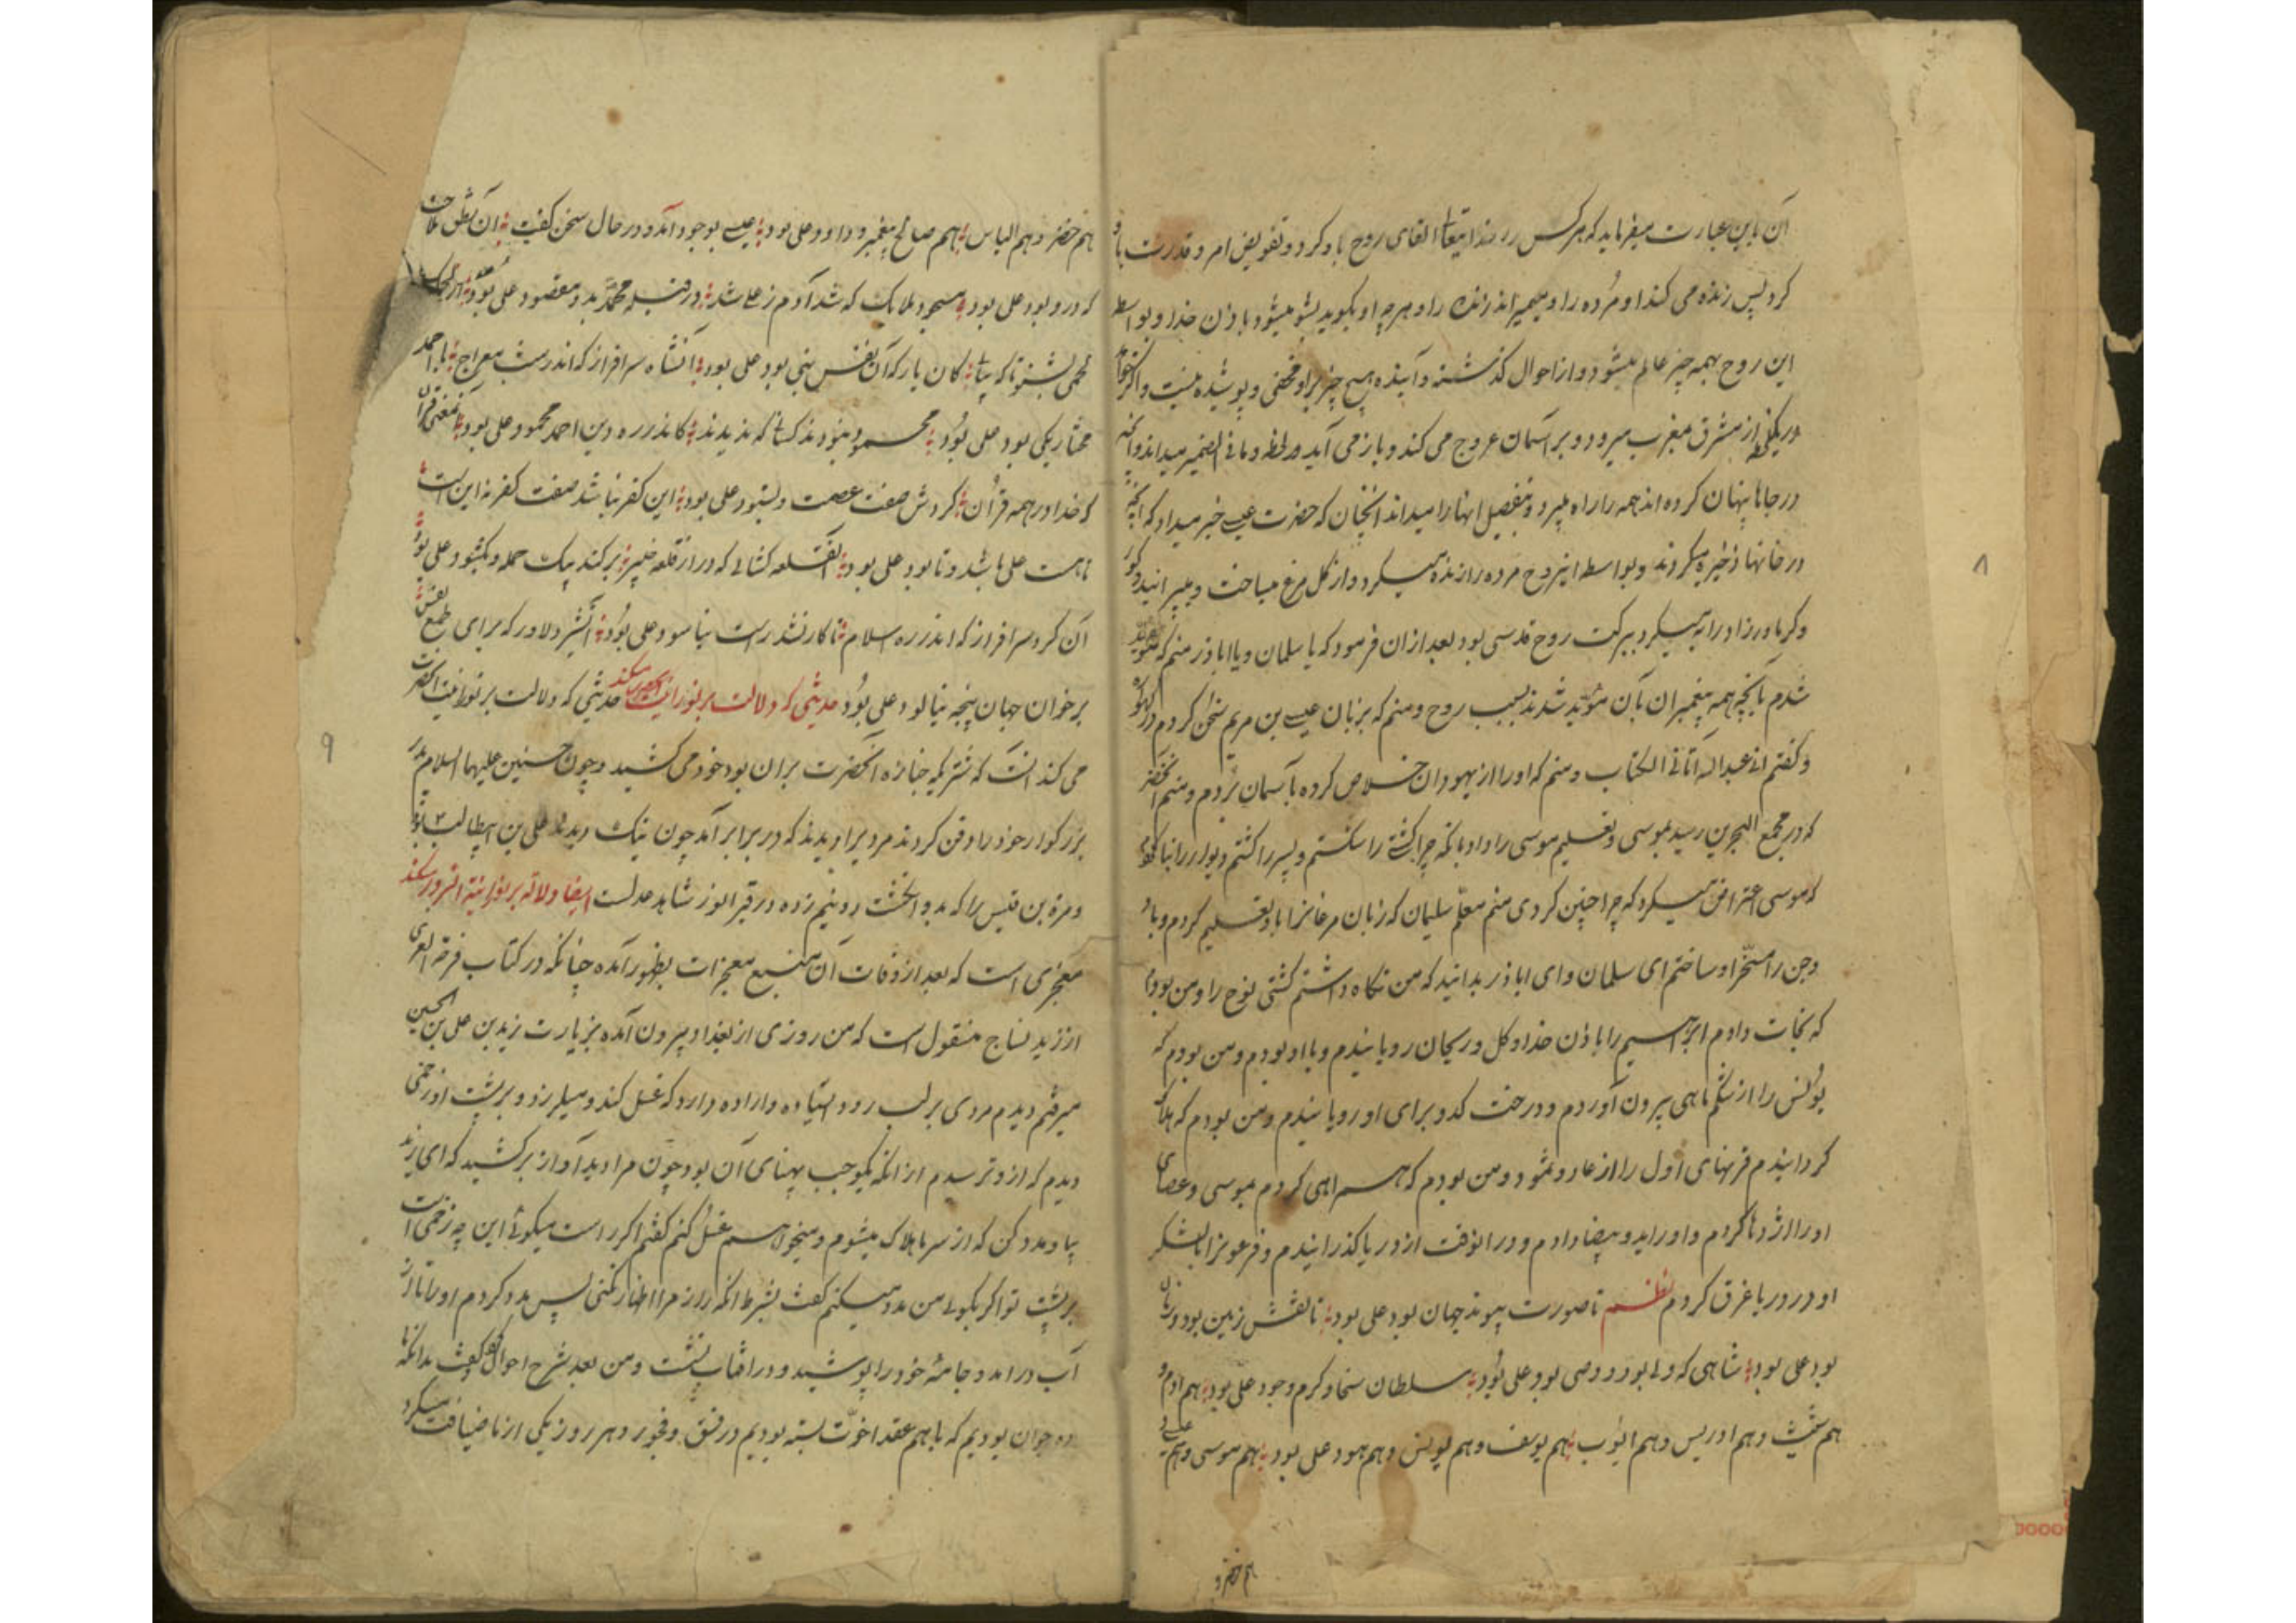 آن باین عبارت میفرماید که هر کس را خدایتعالی القای روح باو کرد و تفویض امر و قدرت باو
کرد پس زنده می کند او مرده را و میمیراند زنده را و هر چه او بگوید بشو میشود باذن خدا و بواسطه
این روح بهمه چیز عالم میشود و از احوال گذشته و آینده هیچ چیز براو مخفی و پوشیده نیست و اگر خواهد
در یکلحظه از مشرق بمغرب میرود و بر آسمان عروج می کند و باز می آید در لحظه و ما فی الضمیر میداند و آنچه
در جاها پنهان کرده اند همه را راه میبرد و بتفصیل آنها را میداند آنچنان که حضرت عیسی خبر میداد که آنچه
در خانها ذخیره میکردند و بواسطه اینروح مرده را زنده میکرد و از گل مرغ میساخت و میپرانید و کور
و کر مادرزاد را به میکرد ببرکت روح قدسی بود بعد از ان فرمود که یا سلمان و یا اباذر منم که مؤید
شدم بآنچه همه پیغمبران بآن مؤید شدند بسبب روح و منم که بزبان عیسی بن مریم سخن کردم در گهواره
و گفتم انی عبدالله آتانی الکتاب و منم که او را از یهودان خلاص کرده بآسمان بردم و منم آنخضر
که در مجمع البحرین رسید بموسی و تعلیم موسی را داد بآنکه چرا کشتی را شکستم و پسر را کشتم و دیوار را بنا کردم
که موسی اعتراض میکرد که چرا چنین کردی منم معلم سلیمان که زبان مرغانرا باو تعلیم کردم و باد
و جن را مسخر او ساختم ای سلمان و ای اباذر بدانید که من نگاه داشتم کشتی نوح را و من بودم
که نجات دادم ابراهیم را باذن خدا و گل و ریحان رویانیدم و با او بودم و من بودم که
یونس را از شکم ماهی بیرون آوردم و درخت کدو برای او رویانیدم و من بودم که هلاک
گردانیدم قرنهای اول را از عاد و ثمود و من بودم که همراهی کردم بموسی و عصای
او را اژدها کردم و او را ید و بیضا دادم و در انوقت از دریا گذرانیدم و فرعونرا با لشکر
او در دریا غرق کردم نظم تا صورت پیوند جهان بود علی بود تا نقش زمین بود و زمان
بود علی بود شاهی که ولی بود و وصی بود علی بود سلطان سخا و کرم و جود علی بود هم آدم و
هم شیث و هم ادریس و هم ایوب هم یوسف و هم یونس و هم هود علی بود هم موسی و هم عیسی و
هم خضر و
۸
هم خضر و هم الیاس هم صالح پیغمبر و داود علی بود عیسی بوجود آمد و در حال سخن گفت آن نطق
که در و بود علی بود مسجود ملایک که شد آدم ز علی شد در قبله محمد بد و مقصود علی بود
لحمی بشنو تا که بیابی کان یار که آن نفس نبی بود علی بود آنشاه سرافراز که اندر شب معراج با احمد
مختار یکی بود علی بود محمود نبودند کسانی که ندیدند کاندر ره دین احمد محمود علی بود آن معنی قرآن
که خدا در همه قرآن کردش صفت عصمت و بستود علی بود این کفر نباشد صفت کفر نه این است
تا هست علی باشد و تا بود علی بود آن قلعه کشائی که در از قلعه خیبر برکند بیک حمله و بگشود علی بود
آن گرد سرافراز که اندر ره اسلام تا کار نشد راست نیاسود علی بود آنشیر دلاور که برای طمع نفس
بر خوان جهان پنجه نیالود علی بود حدیثی که دلالت بر نورانیت آنحضرت میکند حدیثی که دلالت بر نورانیت آنحضرت
می کند آنست که شتریکه جنازه آنحضرت بران بود خود می کشید و چون حسنین علیهما السلام پدر
بزرگوار خود را دفن کردند مردیرا دیدند که در برابر آمد چون نیک دیدند علی بن ابیطالب بود
و مرة بن قیس را که بدو انگشت دو نیم زده در قبر انور شاهد عدلست ایضا دلالة بر نورانیة انسرور میکند
معجزی است که بعد از وفات آن منبع معجزات بظهور آمده چنانکه در کتاب فرحة الغری
از زید نساج منقول است که من روزی از بغداد بیرون آمده بزیارت زید بن علی بن الحسین
میرفتم دیدم مردی بر لب رود ایستاده و اراده دارد که غسل کند و میلرزد و بر پشت او زخمی
دیدم که از و ترسدم از انکه یکوجب پهنای آن بود چون مرا دید آواز برکشید که ای زید
بیا و مدد کن که از سرما هلاک میشوم و میخواهم غسل کنم گفتم اگر راست میگوئی این چه زخمی است
بر پشت تو اگر بگوئی من مدد میکنم گفت بشرط انکه راز مرا اظهار نکنی پس مدد کردم او را تا از
آب درآمد و جامه خود را پوشید و در آفتاب نشست و من بعد شرح احوال گفت بدانکه ما
ده جوان بودیم که با هم عقد اخوت بسته بودیم در فسق و فجور و هر روز یکی از ما ضیافت میکرد
۹